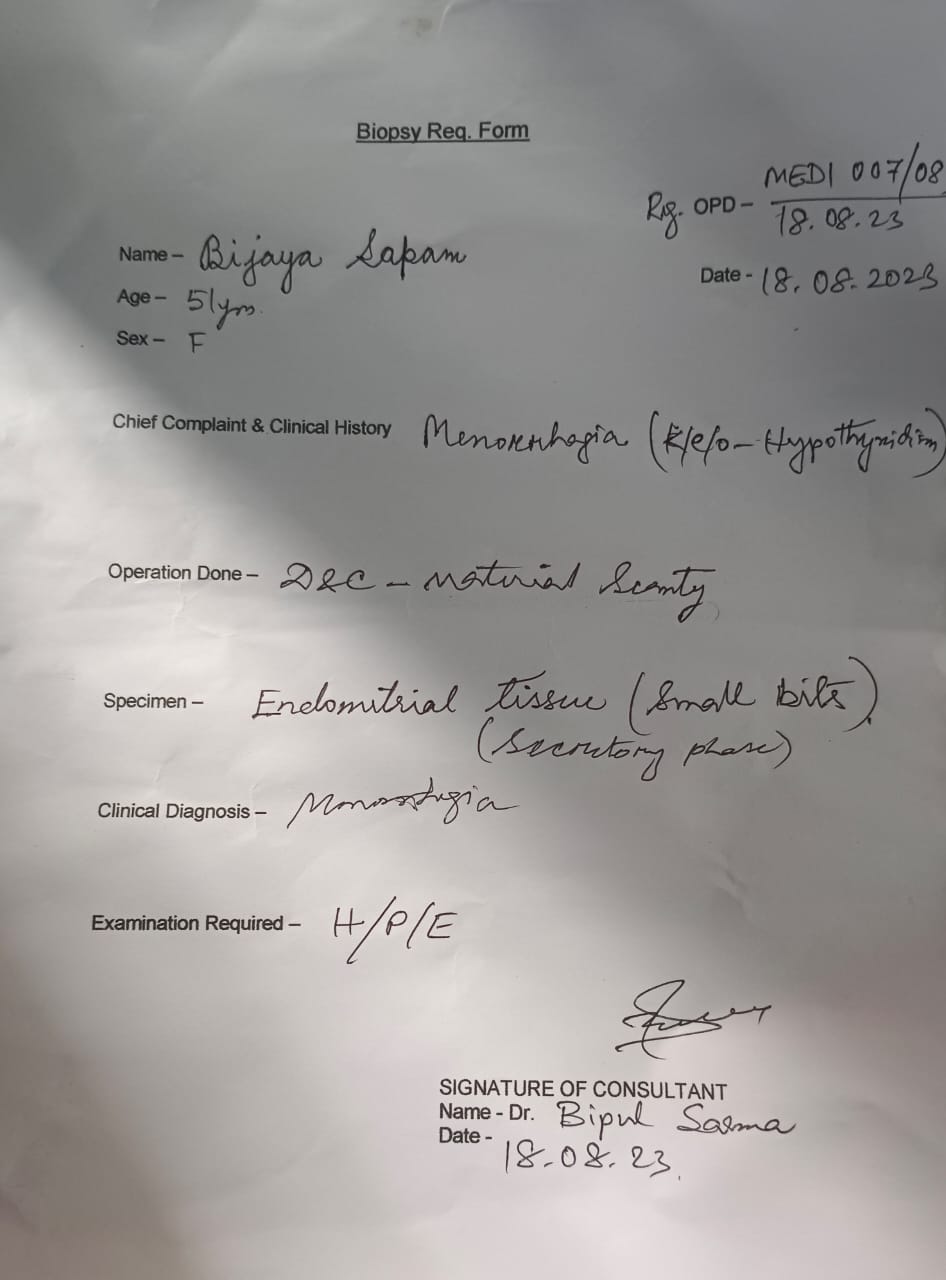 Biopsy Req. Form
Rg. OPD - MEDI 007/08
18.08.23
Name - Bijaya Sapam
Date - 18.08.2023
Age - 51yrs.
Sex - F
Chief Complaint & Clinical History Menorrhagia (K/c/o - Hypothyroidism)
Operation Done - D&C - Material Scanty
Specimen - Endometrial tissue (Small bits)
(Secretory phase)
Clinical Diagnosis - Menorrhagia
Examination Required - H/P/E
SIGNATURE OF CONSULTANT
Name - Dr. Bipul Sarma
Date - 18.08.23.